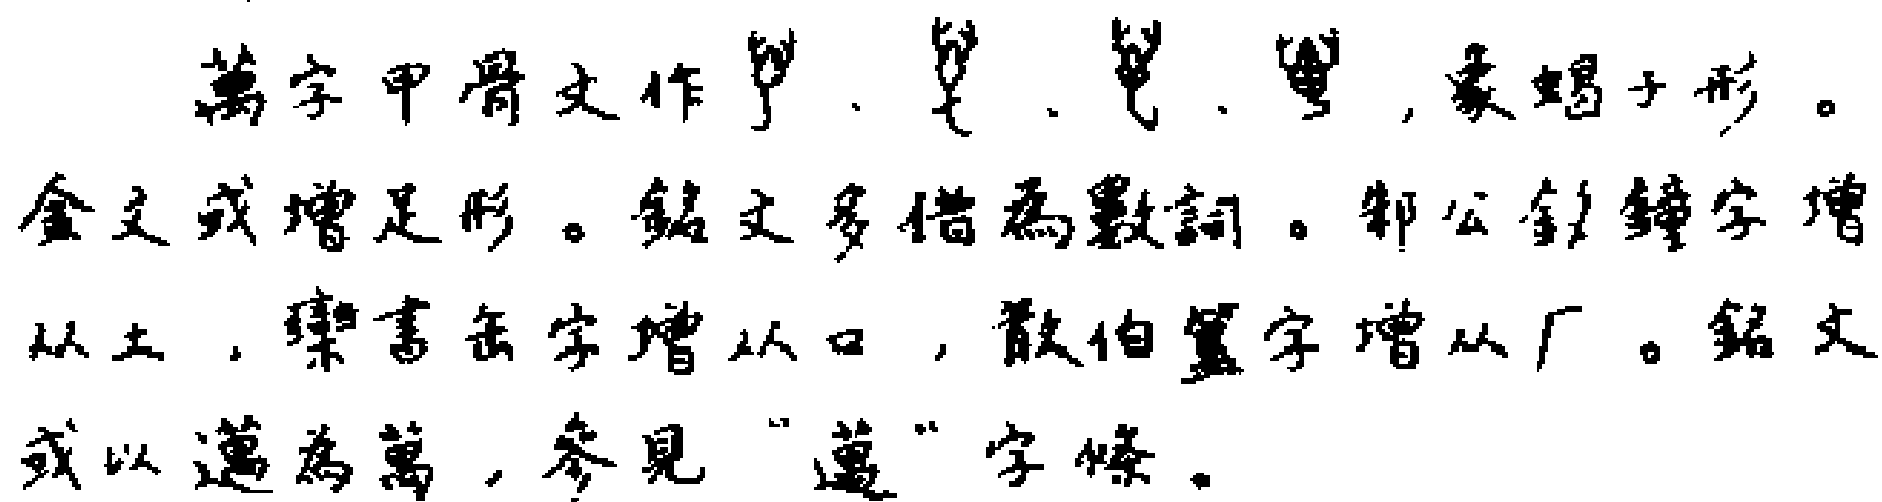 萬字甲骨文作、、、，象蝎子形。
金文或增足形。銘文多借為數詞。邾公釛鐘字增
从土，欒書缶字增从口，散伯簋字增从厂。銘文
或以邁為萬，參見“邁”字條。